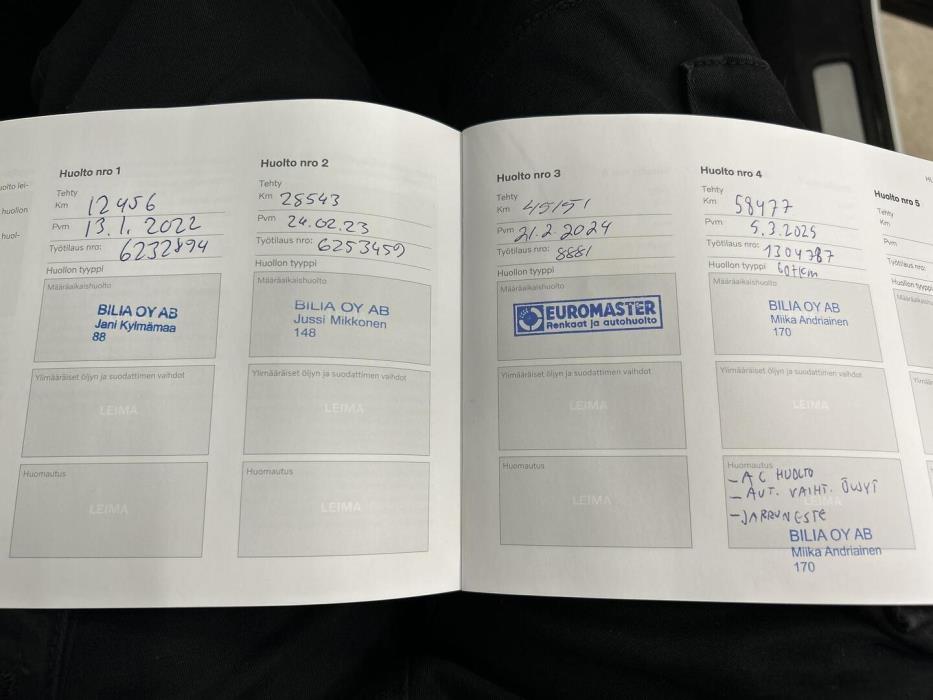 uolto lei-
huollon
huol-
Huolto nro 1
Tehty
Km 12456
Pvm 13.1.2022
Työtilaus nro: 6232894
Huollon tyyppi
Määräaikaishuolto
BILIA OY AB
Jani Kylmämaa
88
Ylimääräiset öljyn ja suodattimen vaihdot
LEIMA
Huomautus
LEIMA
Huolto nro 2
Tehty
Km 28543
Pvm 24.02.23
Työtilaus nro: 6253459
Huollon tyyppi
Määräaikaishuolto
BILIA OY AB
Jussi Mikkonen
148
Ylimääräiset öljyn ja suodattimen vaihdot
LEIMA
Huomautus
LEIMA
Huolto nro 3
Tehty
Km 45151
Pvm 21.2.2024
Työtilaus nro: 8881
Huollon tyyppi
Määräaikaishuolto
EUROMASTER
Renkaat ja autohuolto
Ylimääräiset öljyn ja suodattimen vaihdot
LEIMA
Huomautus
LEIMA
Huolto nro 4
Tehty
Km 58477
Pvm 5.3.2025
Työtilaus nro: 1304787
Huollon tyyppi 60tkm
Määräaikaishuolto
BILIA OY AB
Miika Andriainen
170
Ylimääräiset öljyn ja suodattimen vaihdot
LEIMA
Huomautus
- AC HUOLTO
- AUT. VAIHT. ÖLJYT
- JARRUNESTE
BILIA OY AB
Miika Andriainen
170
Huolto nro 5
Tehty
Km
Pvm
Työtilaus nro:
Huollon tyyppi